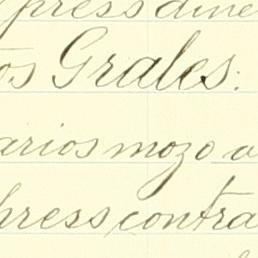 press dine
os Grales:
arios mozo a
hress, contra